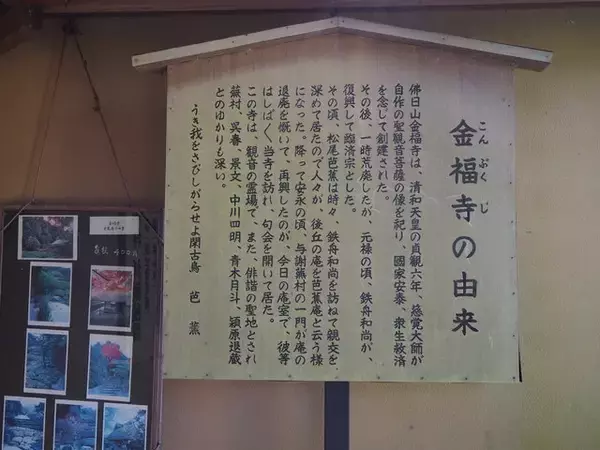 金福寺の由来
こん ぷく じ
佛日山金福寺は、清和天皇の貞観六年、慈覚大師が
自作の聖観音菩薩の像を祀り、國家安泰、衆生救済
を念して創建された。
その後、一時荒廃したが、元禄の頃、鉄舟和尚が、
復興して臨済宗とした。
その頃、松尾芭蕉は時々、鉄舟和尚を訪ねて親交を
深めて居たので人々が、後丘の庵を芭蕉庵と云う様
になった。降って安永の頃、与謝蕪村の一門が庵の
退廃を慨いて、再興したのが、今日の庵室で、彼等
はしばく、当寺を訪れ、句会を開いて居た。
この寺は、観音の霊場で、また、俳諧の聖地とされ
蕪村、呉春、景文、中川四明、青木月斗、潁原退蔵
とのゆかりも深い。
うき我をさびしがらせよ閑古鳥 芭蕉